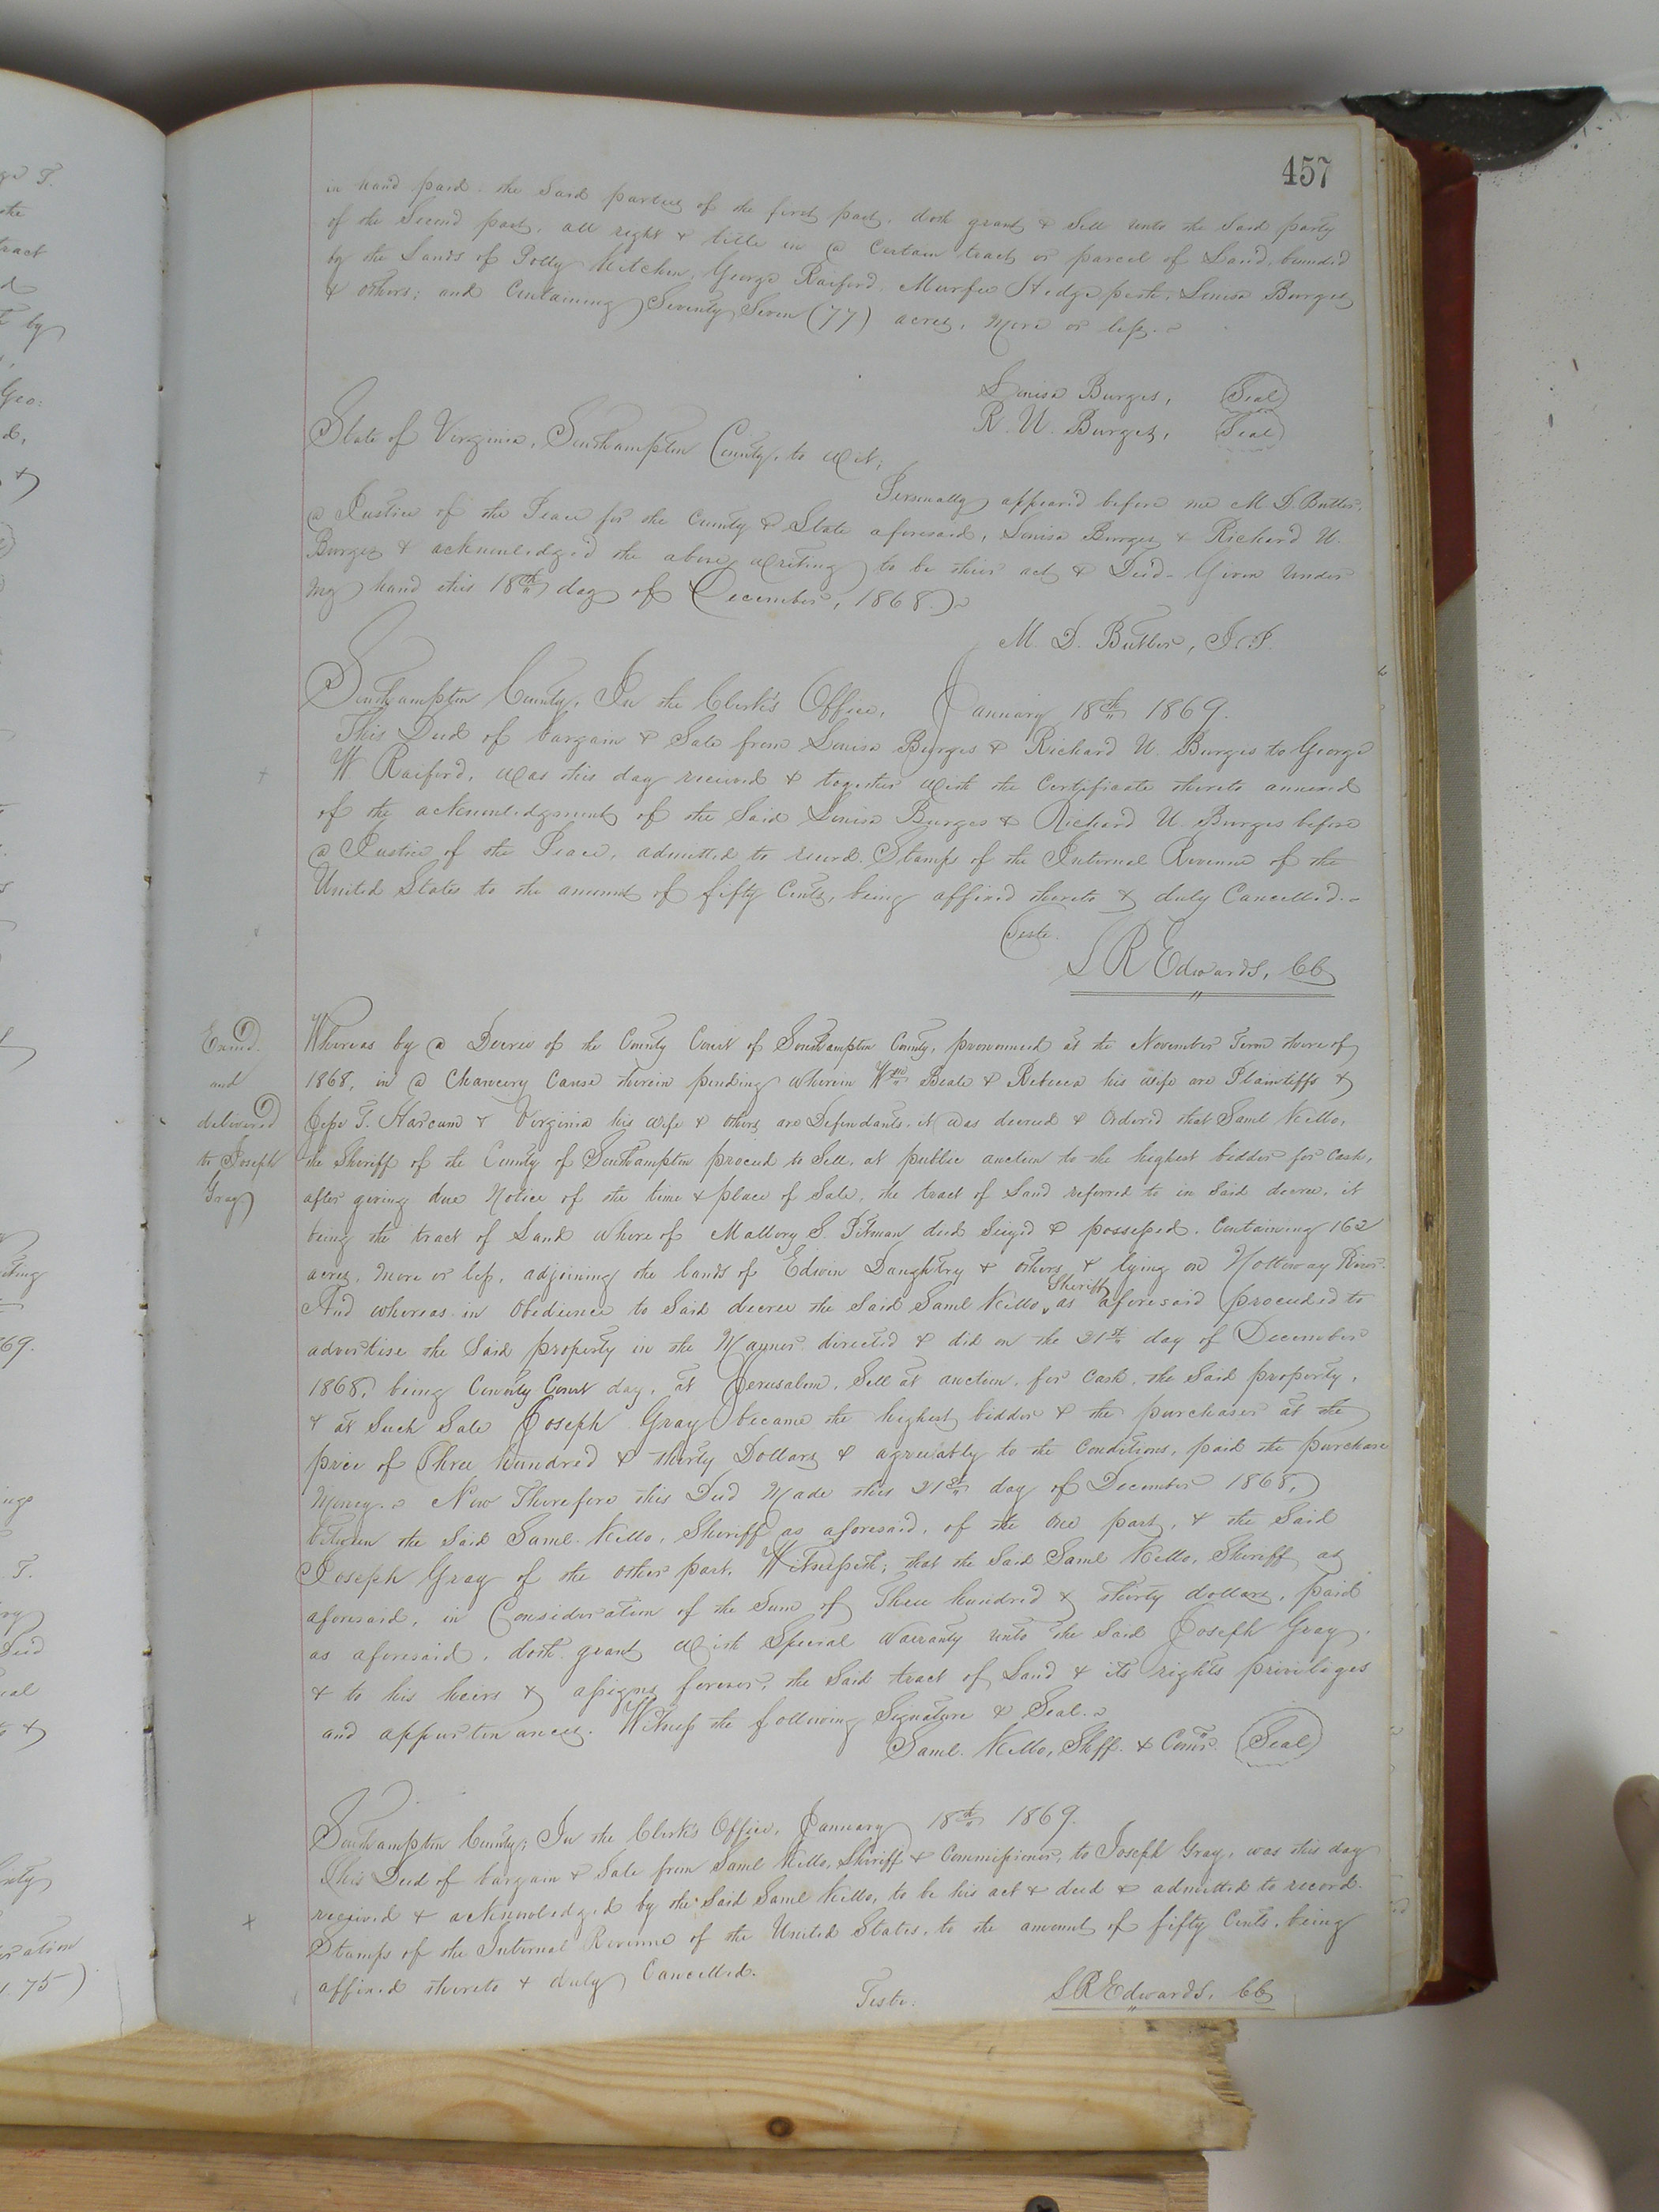 457
in hand paid. the Said parties of the first part, doth grant & Sell unto the Said party
of the Second part, all right & title in a Certain tract or parcel of Land, bounded
by the Lands of Polly Kitchen, George Raiford, Murfee Hedgepeth, Louisa Burges
& others; and Containing Seventy Seven (77) acres, More or less.
Louisa Burges, (Seal)
R. U. Burges, (Seal)
State of Virginia, Southampton County, to wit;
Personally appeared before me M. D. Butler,
a Justice of the Peace for the County & State aforesaid, Louisa Burges & Richard U.
Burges & acknowledged the above writing to be their act & Deed. Given Under
my hand this 18th day of December, 1868.
M. D. Butler, J. P.
Southampton County, In the Clerk's Office, January 18th 1869.
This Deed of bargain & Sale from Louisa Burges & Richard U. Burges to George
W. Raiford, was this day received & together with the Certificate thereto annexed
of the acknowledgment of the Said Louisa Burges & Richard U. Burges before
a Justice of the Peace, admitted to record. Stamps of the Internal Revenue of the
United States to the amount of fifty Cents, being affixed thereto & duly Cancelled.
Teste.
L R Edwards, CC
Exmd.
and
delivered
to Joseph
Gray
Whereas by a Decree of the County Court of Southampton County, pronounced at the November Term thereof
1868, in a Chancery Cause therein pending wherein Wm Beale & Rebecca his wife are Plaintiffs &
Jesse T. Harcum & Virginia his wife & others are Defendants, it was decreed & ordered that Saml Kello,
the Sheriff of the County of Southampton proceed to Sell, at public auction to the highest bidder for Cash,
after giving due Notice of the time & place of Sale, the tract of Land referred to in Said decree, it
being the tract of Land whereof Mallory S. Pitman died Seized & possessed. Containing 162
acres, More or less, adjoining the lands of Edwin Daughtry & others & lying on Nottoway River.
And whereas in Obedience to Said decree the Said Saml Kello, Sheriff as aforesaid proceeded to
advertise the Said property in the Manner directed & did on the 21st day of December
1868, being County Court day, at Jerusalem, Sell at auction, for Cash, the Said property,
& at Such Sale Joseph Gray became the highest bidder & the purchaser at the
price of Three hundred & thirty Dollars & agreeably to the Conditions, paid the purchase
Money. Now Therefore this Deed Made this 21st day of December 1868,
between the Said Saml. Kello, Sheriff as aforesaid, of the one part, & the Said
Joseph Gray of the other part. Witnesseth; that the Said Saml Kello, Sheriff as
aforesaid, in Consideration of the Sum of Three hundred & thirty dollars, paid
as aforesaid, doth grant with Special Warranty unto the Said Joseph Gray,
& to his heirs & assigns forever, the Said tract of Land & its rights priviliges
and appurtenances. Witness the following Signature & Seal.
Saml. Kello, Shff. & Comr. (Seal)
Southampton County; In the Clerk's Office, January 18th 1869.
This Deed of bargain & Sale from Saml Kello, Sheriff & Commissioner, to Joseph Gray, was this day
received & acknowledged by the Said Saml Kello, to be his act & deed & admitted to record.
Stamps of the Internal Revenue of the United States, to the amount of fifty Cents, being
affixed thereto & duly Cancelled.
Teste.
L R Edwards, CC